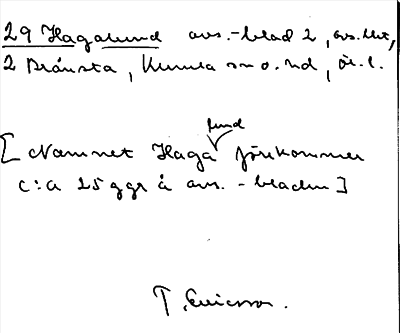 29 Hagalund avs.-blad 2, avs.litt,
2 Brånsta, Kumla sn o. hd, Ör. l.
[Namnet Haga lund förekommer
c:a 25 ggr å avs.-bladen]
T. Ericsson.